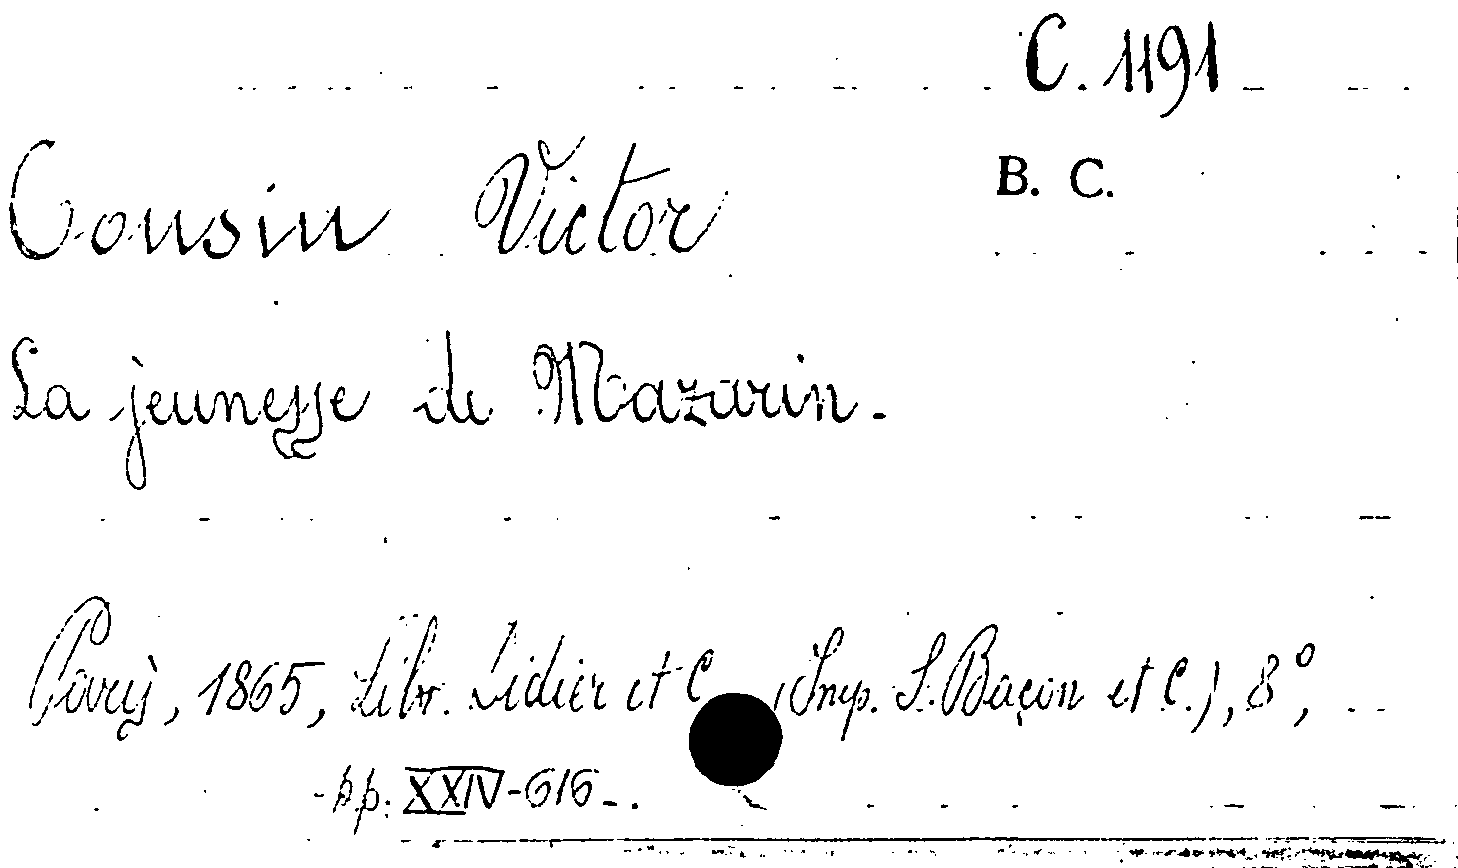 C. 1191
B. C.
Cousin Victor
La jeunesse de Mazarin.
Paris, 1865, Libr. Didier et C (Imp. S. Baçon et C.), 8°,
pp. XXIV-616.